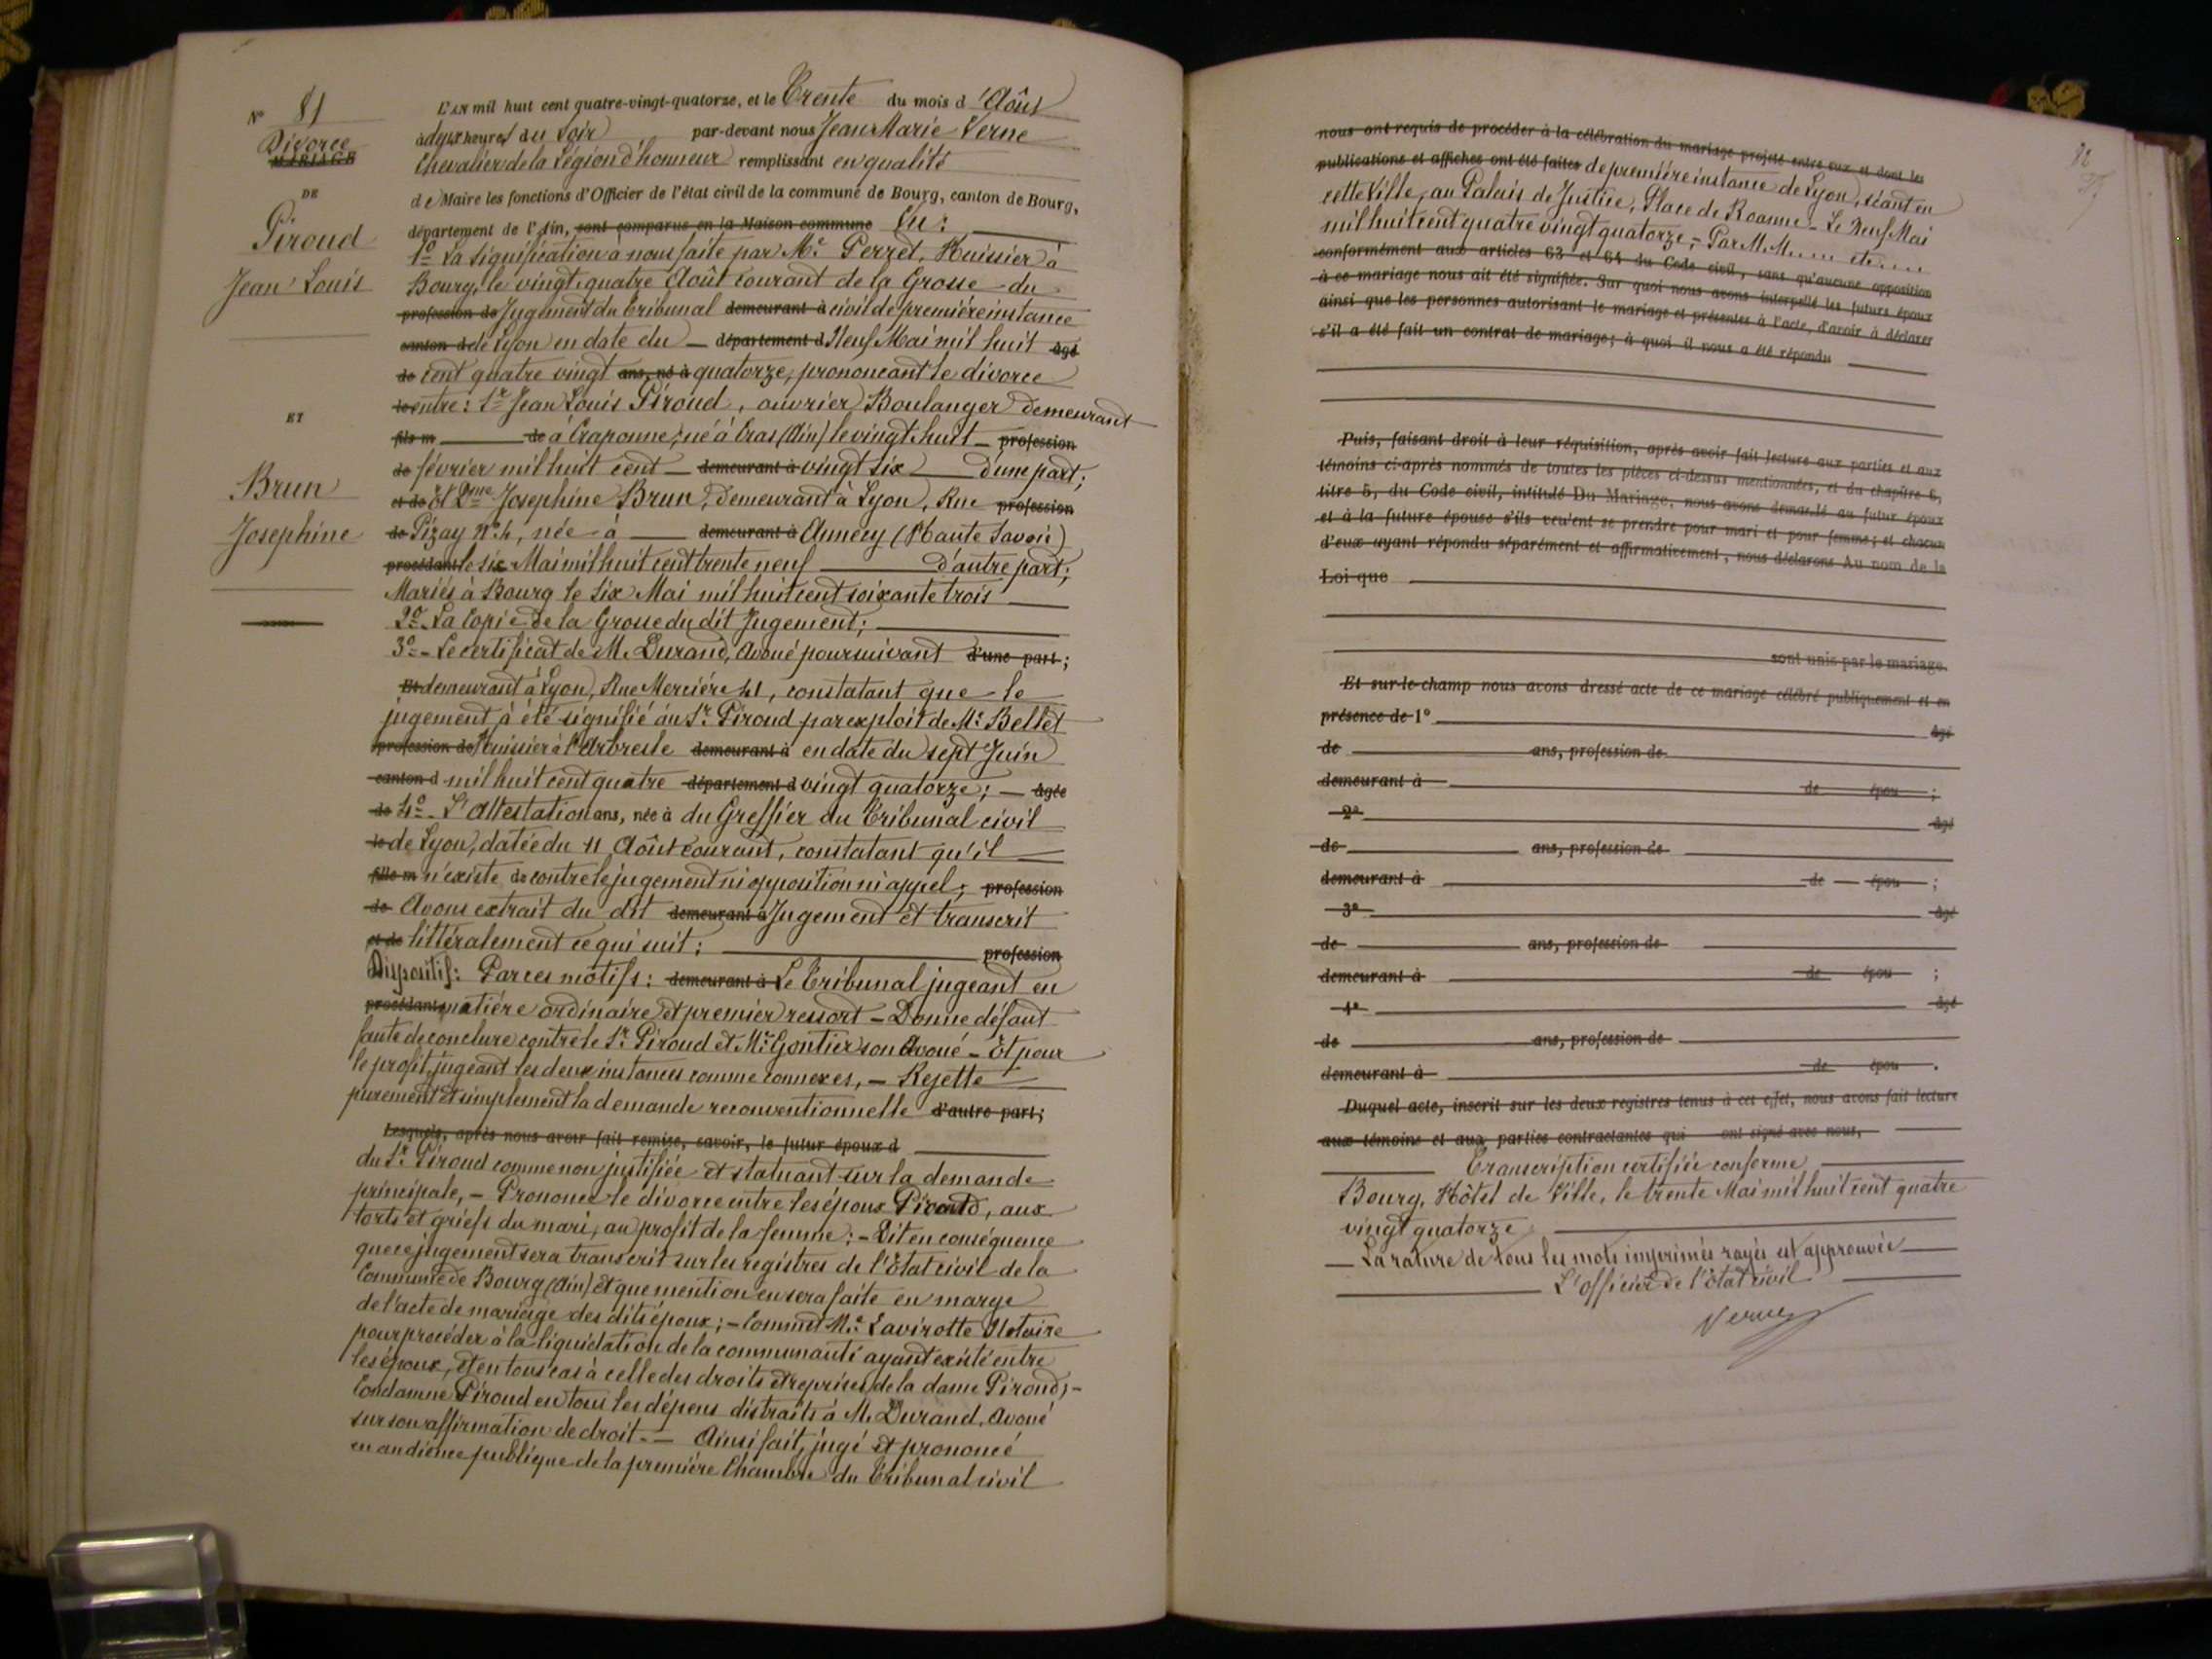 N° 81
Divorce
MARIAGE
DE
Piroud
Jean Louis
ET
Brun
Josephine
L'AN mil huit cent quatre-vingt-quatorze, et le Trente du mois d'Août
à deux heures du soir par-devant nous Jean Marie Verne
Chevalier de la Légion d'honneur remplissant en qualité
de Maire les fonctions d'Officier de l'état civil de la commune de Bourg, canton de Bourg,
département de l'Ain, sont comparus en la Maison commune Vu :
1° La signification à nous faite par Me Perret, Huissier à
Bourg, le vingt quatre Août courant de la Grosse du
profession de Jugement du Tribunal demeurant à civil de première instance
canton d de Lyon en date du — département d Neuf Mai mil huit âgé
de cent quatre vingt ans, né à quatorze, prononçant le divorce
le entre : 1° Jean Louis Piroud, ouvrier Boulanger demeurant
fils m de à Craponne, né à Cras (Ain) le vingt huit — profession
de février mil huit cent — demeurant à vingt six — d'une part ;
et de Et 2me Josephine Brun, demeurant à Lyon, Rue profession
de Pizay N° 4, née à — demeurant à Annecy (Haute Savoie)
procédant le six Mai mil huit cent trente neuf — d'autre part ;
Mariés à Bourg le six Mai mil huit cent soixante trois
2° La Copie de la Grosse du dit Jugement ;
3° - Le certificat de M. Durand, Avoué poursuivant d'une part ;
Et demeurant à Lyon, Rue Mercière 41, constatant que le
jugement à été signifié au Sr Piroud par exploit de Me Bellet
profession de Huissier à l'Arbresle demeurant à en date du sept Juin
canton d mil huit cent quatre département d vingt quatorze ; — âgée
de 4° - L'Attestation ans, née à du Greffier du Tribunal civil
le de Lyon, datée du 11 Août courant, constatant qu'il
fille m n'existe de contre le jugement ni opposition ni appel ; profession
de Avons extrait du dit demeurant à Jugement et transcrit
et de littéralement ce qui suit : profession
Dispositif : Par ces motifs : demeurant à Le Tribunal jugeant en
procédant matière ordinaire et premier ressort — Donne défaut
faute de conclure contre le Sr Piroud et Me Gontier son Avoué — Et pour
le profit, jugeant les deux instances comme connexes, — Rejette
purement et simplement la demande reconventionnelle d'autre part ;
Lesquels, après nous avoir fait remise, savoir, le futur époux d
du Sr Piroud comme non justifiée et statuant sur la demande
principale, — Prononce le divorce entre les époux Piroud, aux
torts et griefs du mari, au profit de la femme : — Dit en conséquence
que ce jugement sera transcrit sur les registres de l'Etat civil de la
Commune de Bourg (Ain) et que mention en sera faite en marge
de l'acte de mariage des dits époux ; — Commet Me Lavirotte Notaire
pour procéder à la liquidation de la communauté ayant existé entre
les époux, et en tous cas à celle des droits et reprises de la dame Piroud, —
Condamne Piroud en tous les dépens distraits à M. Durand, Avoué
sur son affirmation de droit. — Ainsi fait, jugé et prononcé
en audience publique de la première Chambre du Tribunal civil
82
nous ont requis de procéder à la célébration du mariage projeté entre eux et dont les
publications et affiches ont été faites de première instance de Lyon, séant en
cette Ville, au Palais de Justice, Place de Roanne — Le Neuf Mai
mil huit cent quatre vingt quatorze, — Par M.M..... etc....
conformément aux articles 63 et 64 du Code civil, sans qu'aucune opposition
à ce mariage nous ait été signifiée. Sur quoi nous avons interpellé les futurs époux
ainsi que les personnes autorisant le mariage et présentes à l'acte, d'avoir à déclarer
s'il a été fait un contrat de mariage ; à quoi il nous a été répondu
Puis, faisant droit à leur réquisition, après avoir fait lecture aux parties et aux
témoins ci-après nommés de toutes les pièces ci-dessus mentionnées, et du chapitre 6,
titre 5, du Code civil, intitulé Du Mariage, nous avons demandé au futur époux
et à la future épouse s'ils veulent se prendre pour mari et pour femme ; et chacun
d'eux ayant répondu séparément et affirmativement, nous déclarons Au nom de la
Loi que
sont unis par le mariage.
Et sur-le-champ nous avons dressé acte de ce mariage célébré publiquement et en
présence de 1° âgé
de ans, profession de
demeurant à de épou ;
2° âgé
de ans, profession de
demeurant à de épou ;
3° âgé
de ans, profession de
demeurant à de épou ;
4° âgé
de ans, profession de
demeurant à de épou .
Duquel acte, inscrit sur les deux registres tenus à cet effet, nous avons fait lecture
aux témoins et aux parties contractantes qui ont signé avec nous,
Transcription certifiée conforme
Bourg, Hôtel de Ville, le trente Mai mil huit cent quatre
vingt quatorze
— La rature de tous les mots imprimés rayés est approuvée
L'officier de l'Etat civil
Verne